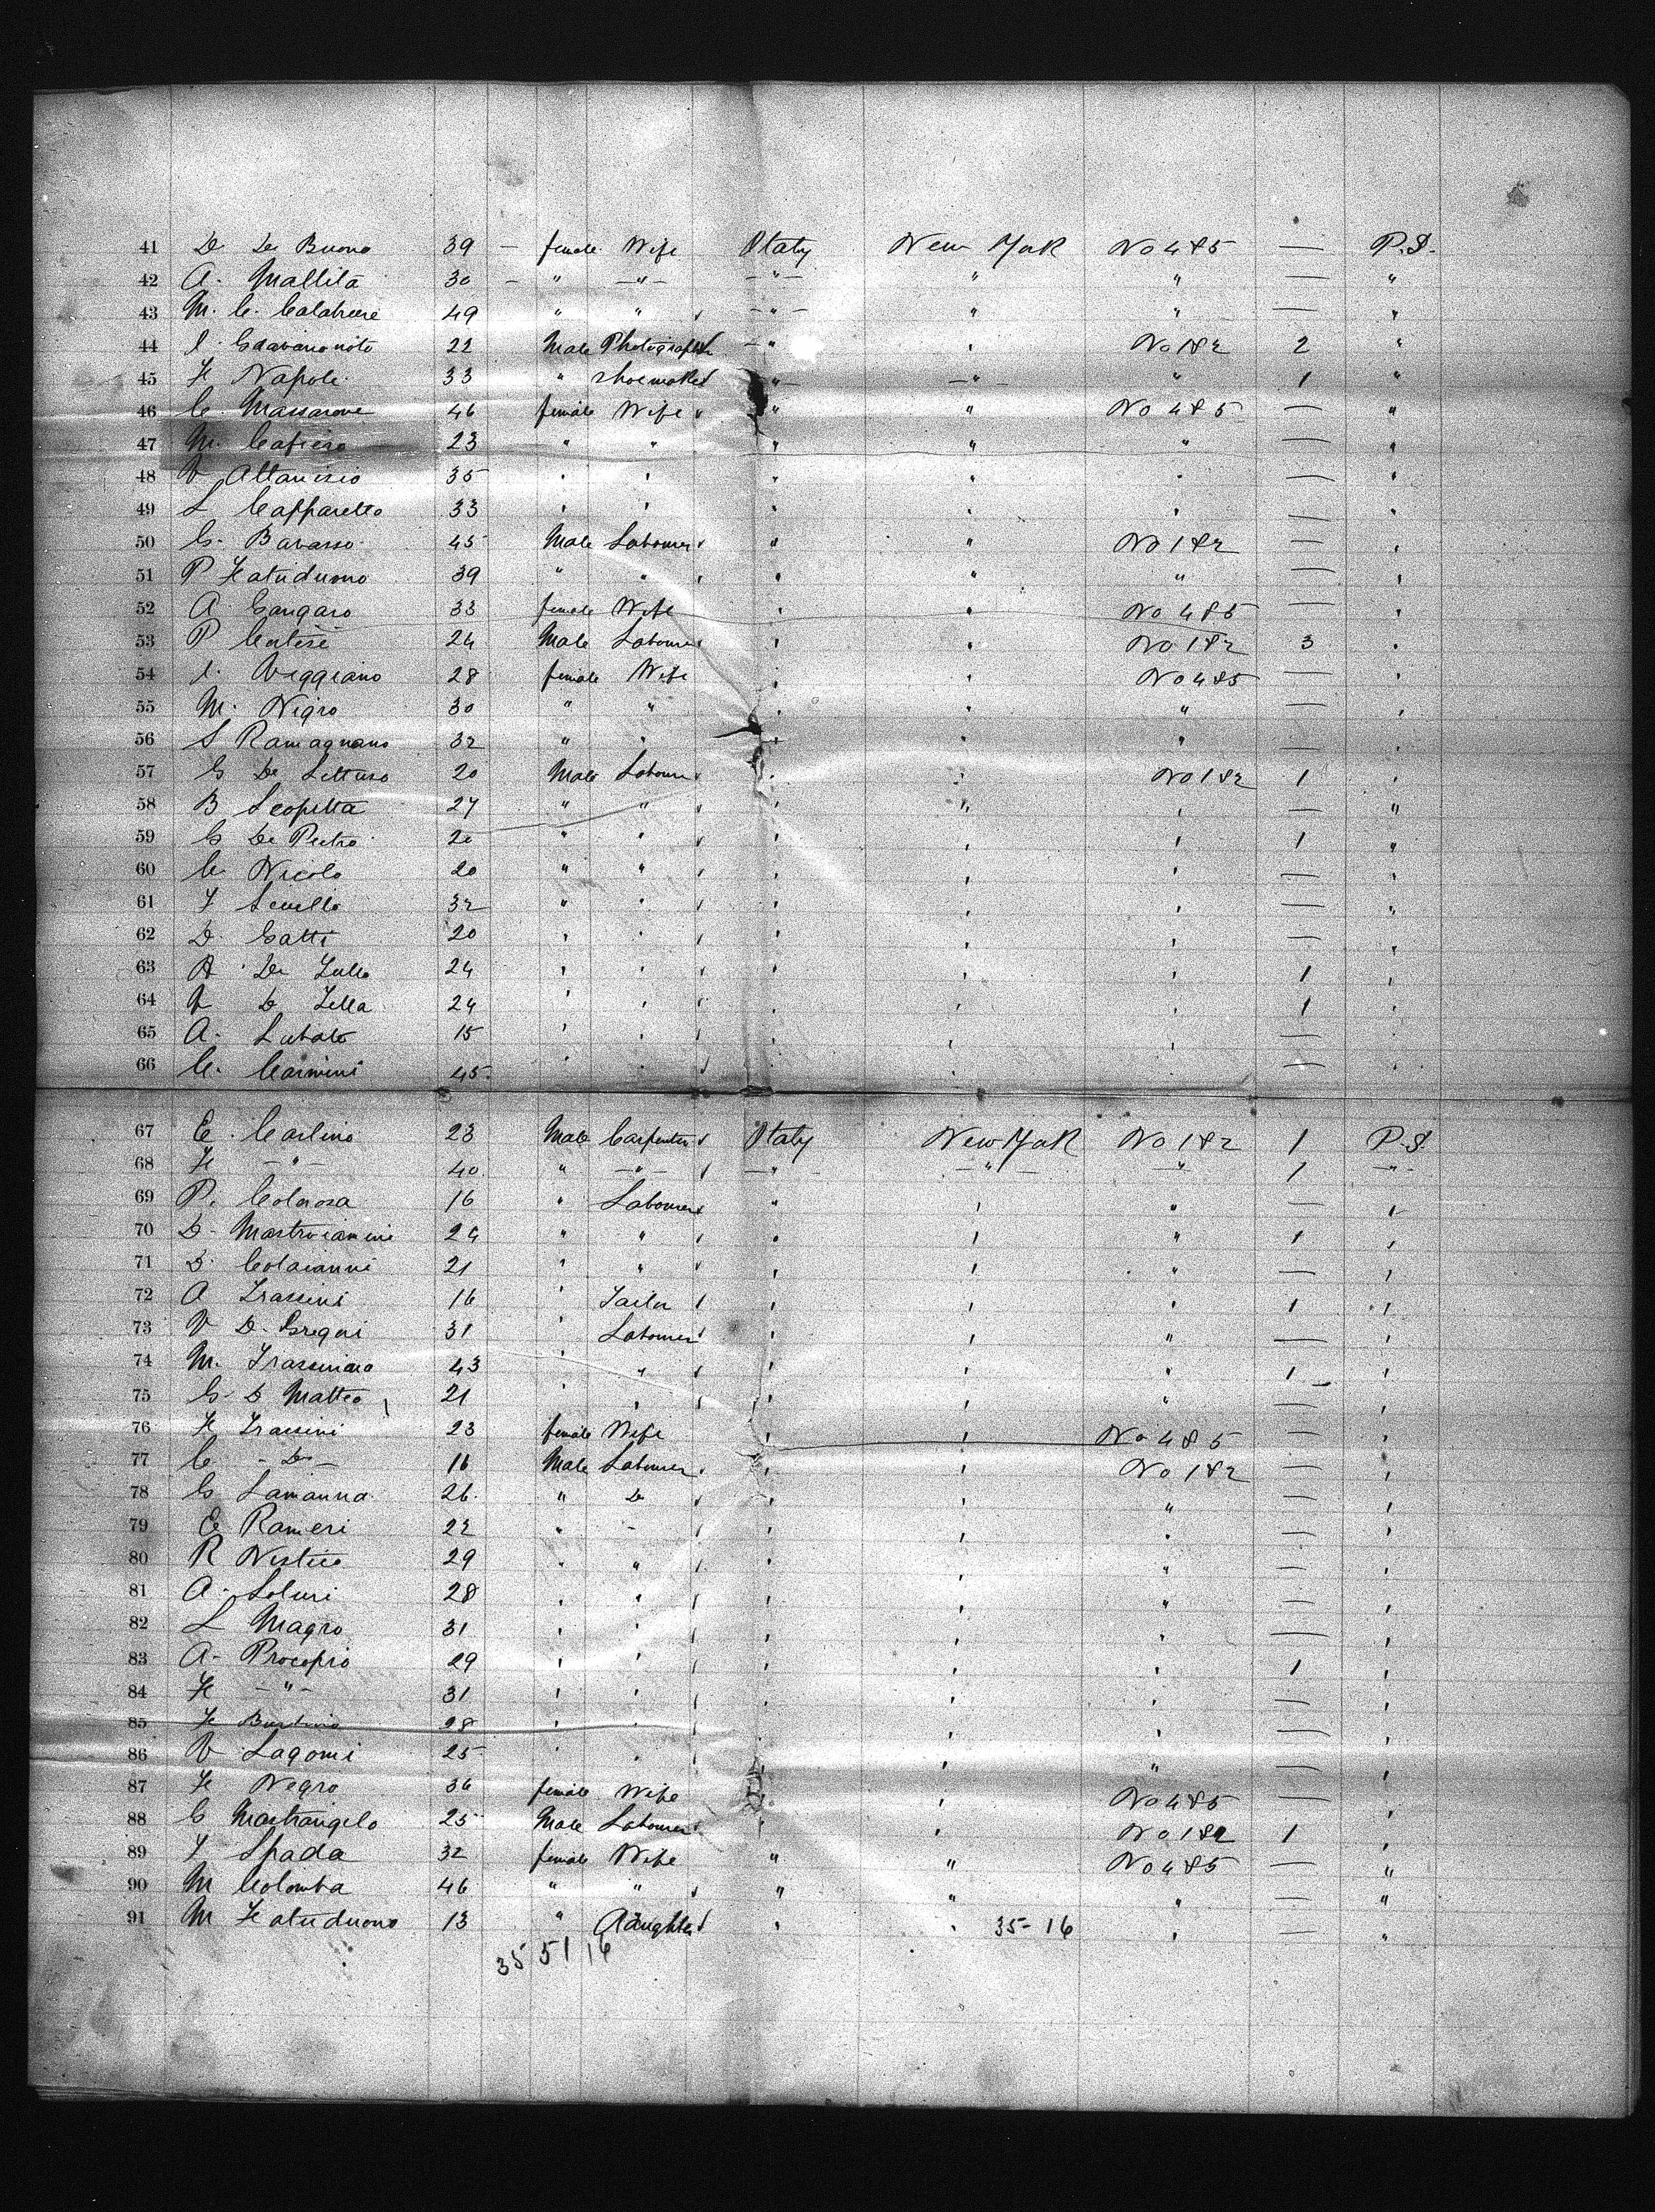 41 D De Buono 39 — female Wife Italy New York No 485 — P.S.
42 A. Mallita 30 — " —"— —"— " " — "
43 M. C. Calabrese 49 " " —"— " " — "
44 22 Male Photographer —" " No 182 2 "
45 F Napoli 33 " shoemaker " —"— " 1 "
46 C. Massarone 46 female Wife " " No 485 — "
47 M. Cafiero 23 " " " " " — "
48 V Altanisio 35 " " " " " — "
49 L Capparello 33 " " " " " — "
50 G. Bavasso 45 Male Labourer " " No 182 — "
51 P Fatiduono 39 " " " " " — "
52 A. Gangaro 33 female Wife " " No 485 — "
53 P Cortese 24 Male Labourer " " No 182 3 "
54 I. Viggiano 28 female Wife " " No 485 — "
55 M. Nigro 30 " " " " " — "
56 S Ramagnano 32 " " " " " — "
57 G De 20 Male Labourer " " No 182 1 "
58 B Scopetta 27 " " " " " — "
59 G De Pietro 20 " " " " " 1 "
60 C. Nicolo 20 " " " " " — "
61 F 32 " " " " " — "
62 D. Gatti 20 " " " " " — "
63 A. De Lullo 24 " " " " " 1 "
64 V D Lella 24 " " " " " 1 "
65 A. Lubato 15 " " " " " — "
66 C. Carmini 45 " " " " — "
67 E. Carlino 23 Male Carpenter Italy New York No 182 1 P.S.
68 F —"— 40 " —"— —"— —"— " 1 —"—
69 P. Colarosa 16 " Labourer " " " — "
70 D. Mastroiannini 24 " " " " " 1 "
71 D. Colaianni 21 " " " " " — "
72 A Frassini 16 " Tailor " " " 1 "
73 V D. Gregori 31 " Labourer " " " — "
74 M. 43 " " " " " 1 "
75 G D Matteo 21 " " " " " — "
76 F. Frassini 23 female Wife " " No 485 — "
77 C — Do — 16 Male Labourer " " No 182 — "
78 G Lamanna 26 " Do " " " — "
79 E Rameri 22 " - " " " — "
80 R 29 " " " " " — "
81 A. 28 " " " " " — "
82 L Magro 31 " " " " " — "
83 A. Procopio 29 " " " " " 1 "
84 F —"— 31 " " " " " — "
85 F 28 " " " " " — "
86 V Lagomi 25 " " " " " — "
87 F Negro 36 female Wife " " No 485 — "
88 G Mastrangelo 25 Male Labourer " " No 182 1 "
89 F Spada 32 female Wife " " No 485 — "
90 M Colomba 46 " " " " " — "
91 M Fatiduono 13 " Daughter " " 35-16 " — "
35 51 16